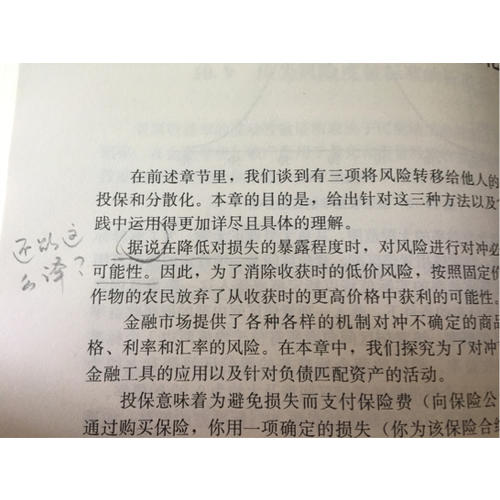 在前述章节里，我们谈到有三项将风险转移给他人的
投保和分散化。本章的目的是，给出针对这三种方法以及
践中运用得更加详尽且具体的理解。
据说在降低对损失的暴露程度时，对风险进行对冲必
可能性。因此，为了消除收获时的低价风险，按照固定价
作物的农民放弃了从收获时的更高价格中获利的可能性。
金融市场提供了各种各样的机制对冲不确定的商品
格、利率和汇率的风险。在本章中，我们探究为了对冲
金融工具的应用以及针对负债匹配资产的活动。
投保意味着为避免损失而支付保险费（向保险公
通过购买保险，你用一项确定的损失（你为该保险合
还能这
么译？